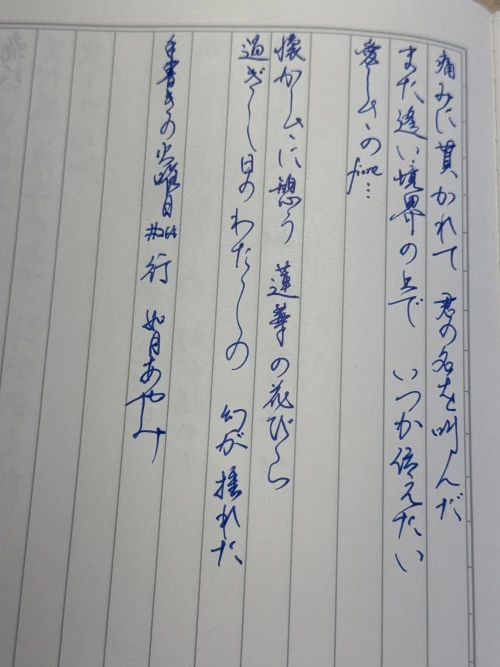 痛みに貫かれて 君の名を叫んだ
また逢い境界の上で いつか伝えたい
愛しさの fine…
懐かしさに憩う 蓮華の花びら
過ぎし日のわたしの 幻が揺れた
手書きの火曜日 #264 行 如月あやみ